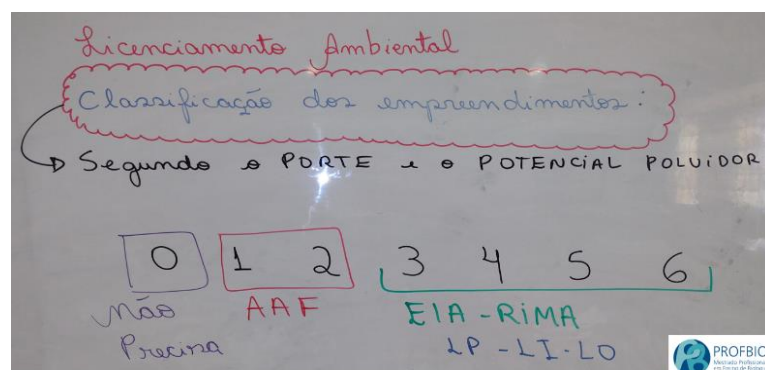 Licenciamento Ambiental
Classificação dos empreendimentos:
Segundo o PORTE e o POTENCIAL POLUIDOR
0 1 2 3 4 5 6
não Precisa
AAF
EIA-RIMA
LP-LI-LO
PROFBIO
Mestrado Profissional
em Ensino de Biologia